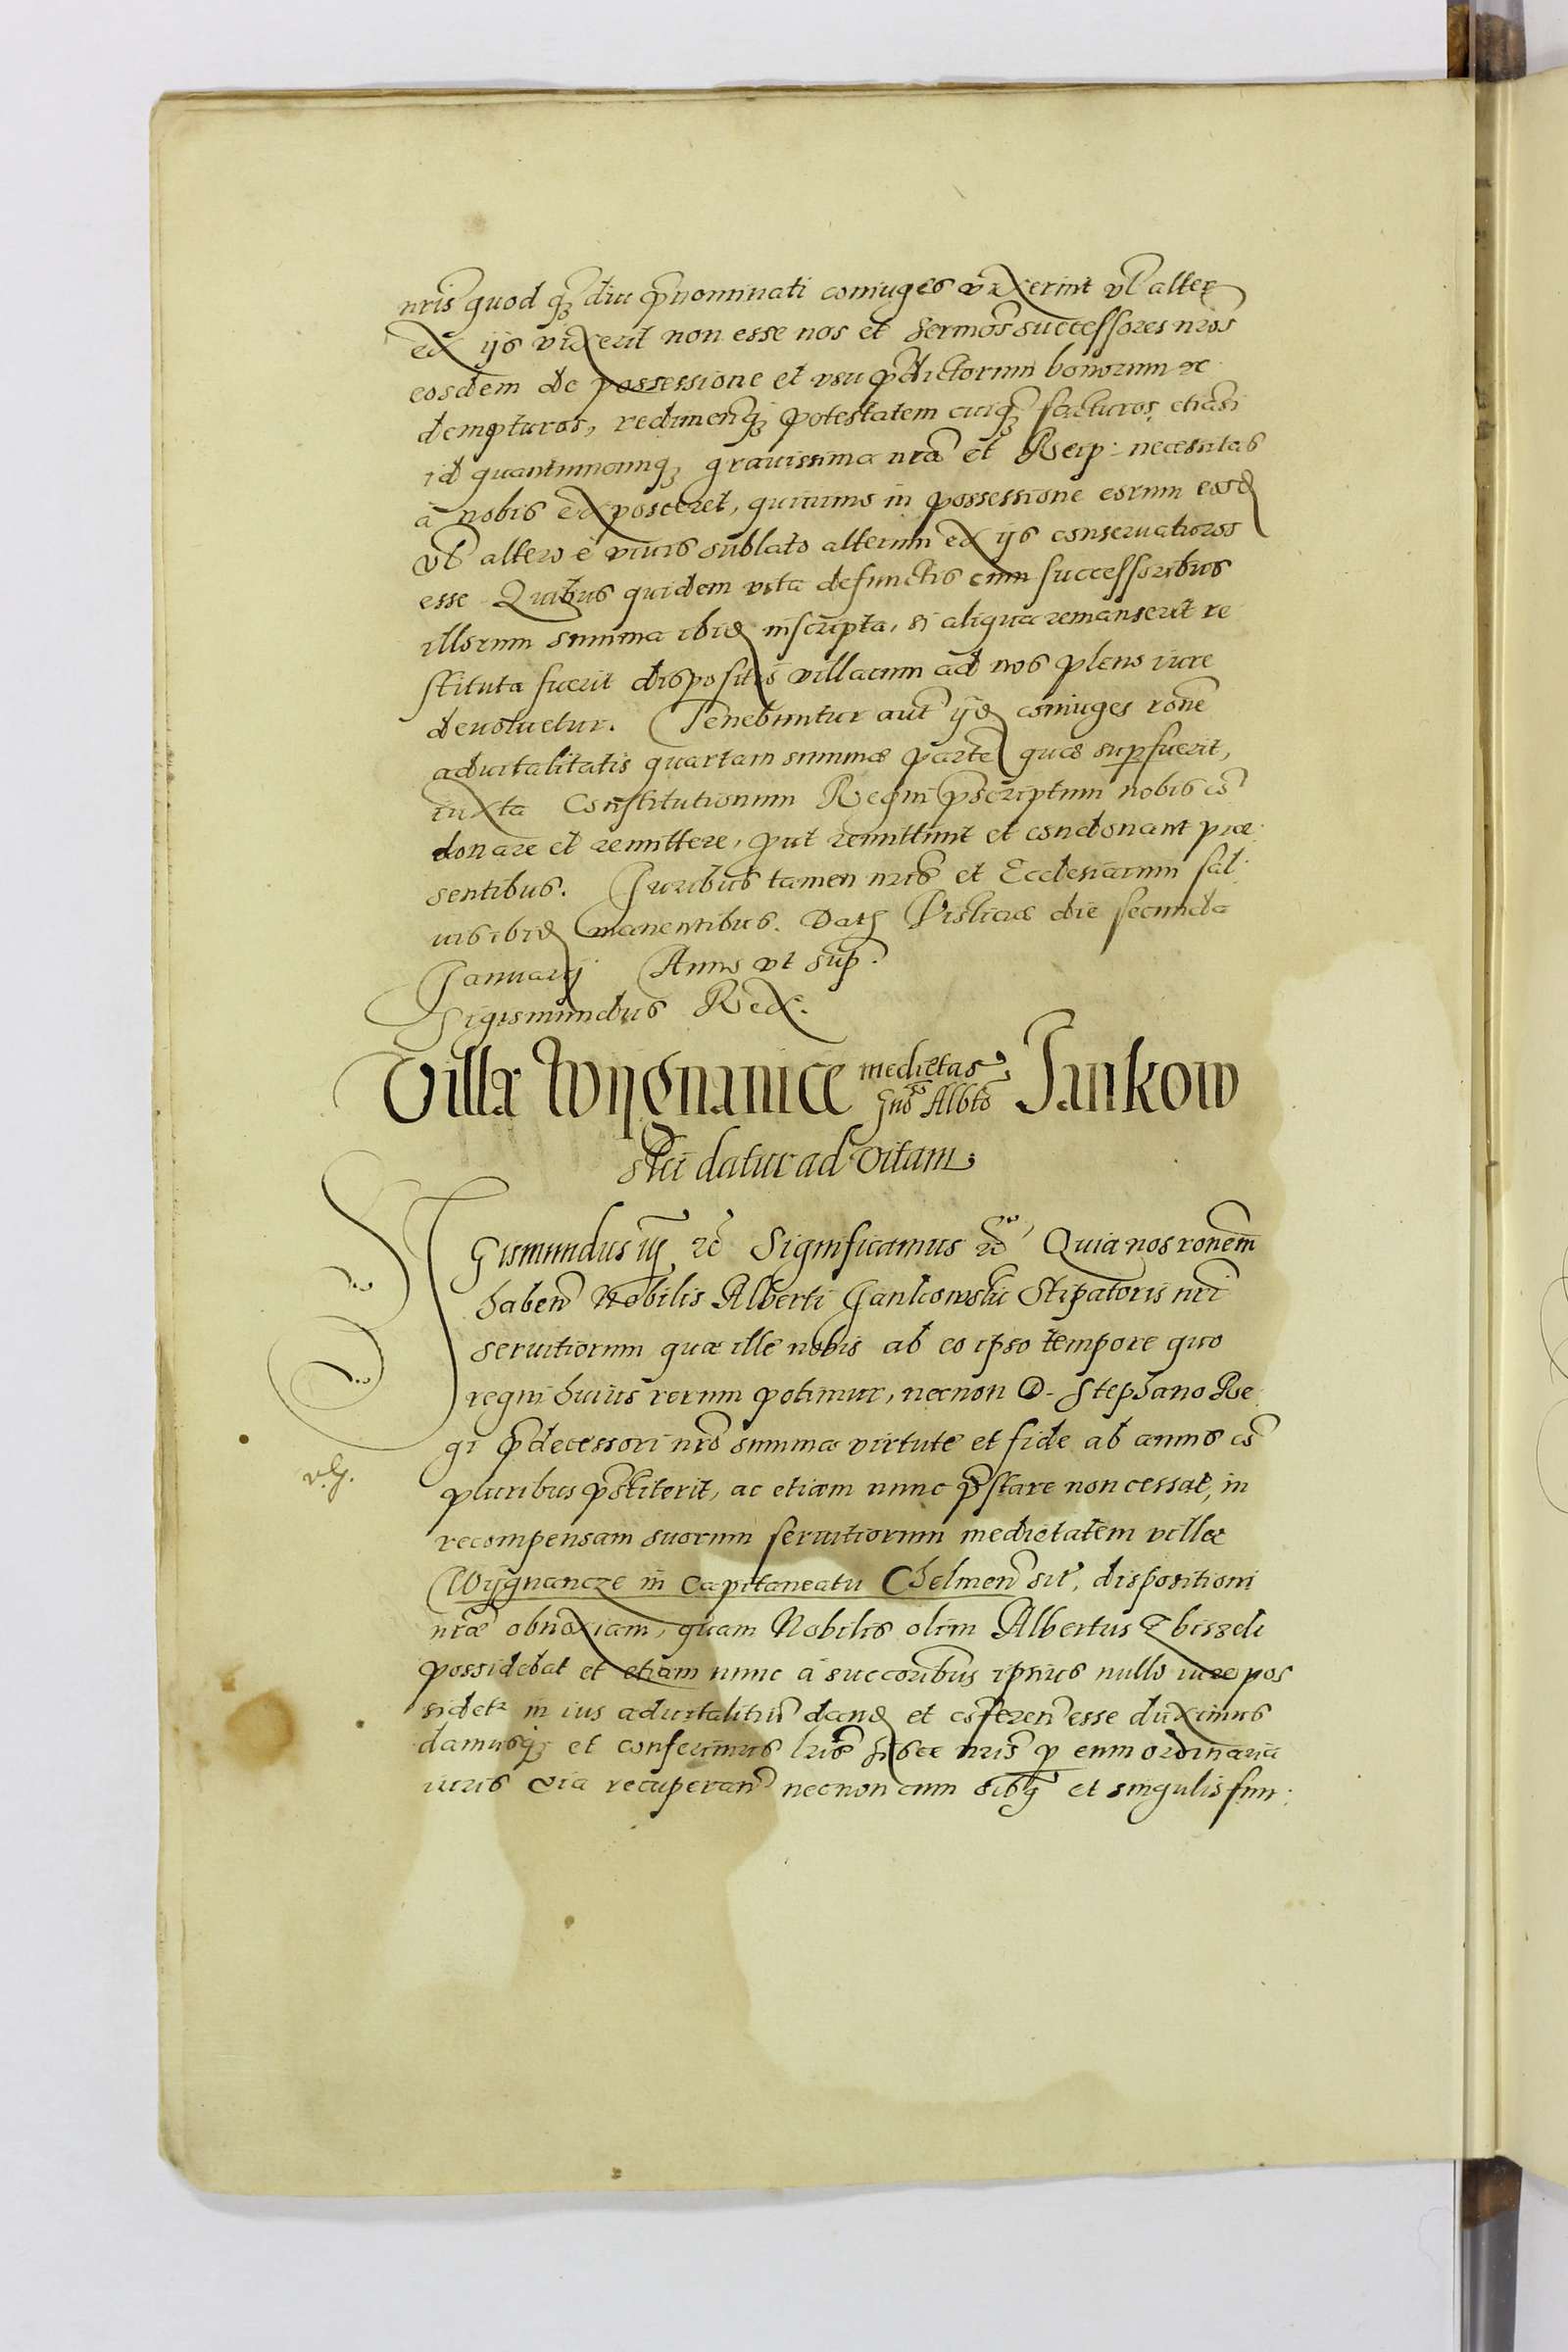 nris quod qz diu pnominati coniuges vixerint vl alter
ex ijs vixerit non esse nos et Sermos successores nros
eosdem de possessione et vsu pdictorum bonorum ex
dempturos, redimendiqz potestatem cuiqz facturos, etiasi
id quantumcunqz grauissima nra et Reip: necessitas
à nobis exposceret, quinimo in possessione eorum eosd
vl altero è viuis sublato alterum ex ijs conseruaturos
esse. Quibus quidem vita defunctis cum successoribus
illorum summa ibid inscripta, si aliqua remanserit re
stituta fuerit dispositio villarum ad nos pleno iure
deuoluetur. Tenebuntur aut ijd coniuges rone
aduitalitatis quartam summæ parte quæ supfuerit,
iuxta Constitutionum Regni pscriptum nobis co
donare et remittere, put remittunt et condonant præ
sentibus. Juribus tamen nris et Ecclesiarum sal:
uis ibid manentibus. Dat Visliciæ die secunda
Januarij Anno vt sup.
Sigismundus Rex.
Villæ Wijgnanice medietas Gnoso Albto Jankow
ski datur ad vitam
Sigismundus iij etc Significamus etc Quia nos ronem
haben Nobilis Alberti Jankowski Stipatoris nri
seruitiorum quæ ille nobis ab eo ipso tempore quo
regni huius rerum potimur, necnon D. Stephano Re
gi pdecessori nro summa virtute et fide ab annis co
vg.
pluribus pstiterit, ac etiam nunc pstare non cessat, in
recompensam suorum seruitiorum medietatem villæ
Wijgnancze in Capitaneatu Chelmen sit, dispositioni
nræ obnoxiam, quam Nobilis olim Albertus Zbiszek
possidebat et etiam nunc à succoribus ipsius nullo iure pos
sidetr in ius aduitalitiu dand et coferen esse duximus
damusqz et conferimus lris hisce nris p eum ordinaria
iuris via recuperan necnon cum oibq et singulis fun: